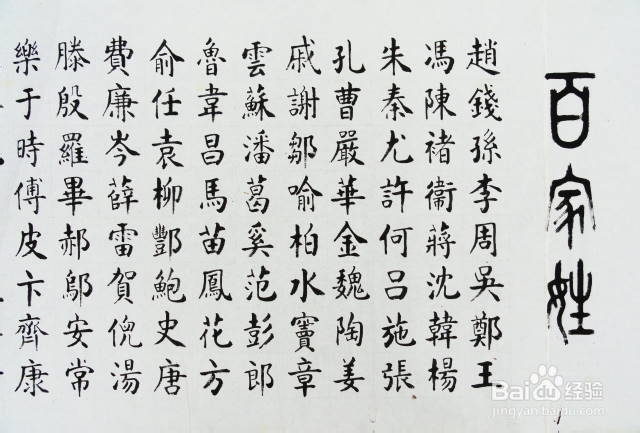 百家姓
趙錢孫李周吳鄭王
馮陳褚衛蔣沈韓楊
朱秦尤許何呂施張
孔曹嚴華金魏陶姜
戚謝鄒喻柏水竇章
雲蘇潘葛奚范彭郎
魯韋昌馬苗鳳花方
俞任袁柳酆鮑史唐
費廉岑薛雷賀倪湯
滕殷羅畢郝鄔安常
樂于時傅皮卞齊康
Baidu经验
jingyan.baidu.com